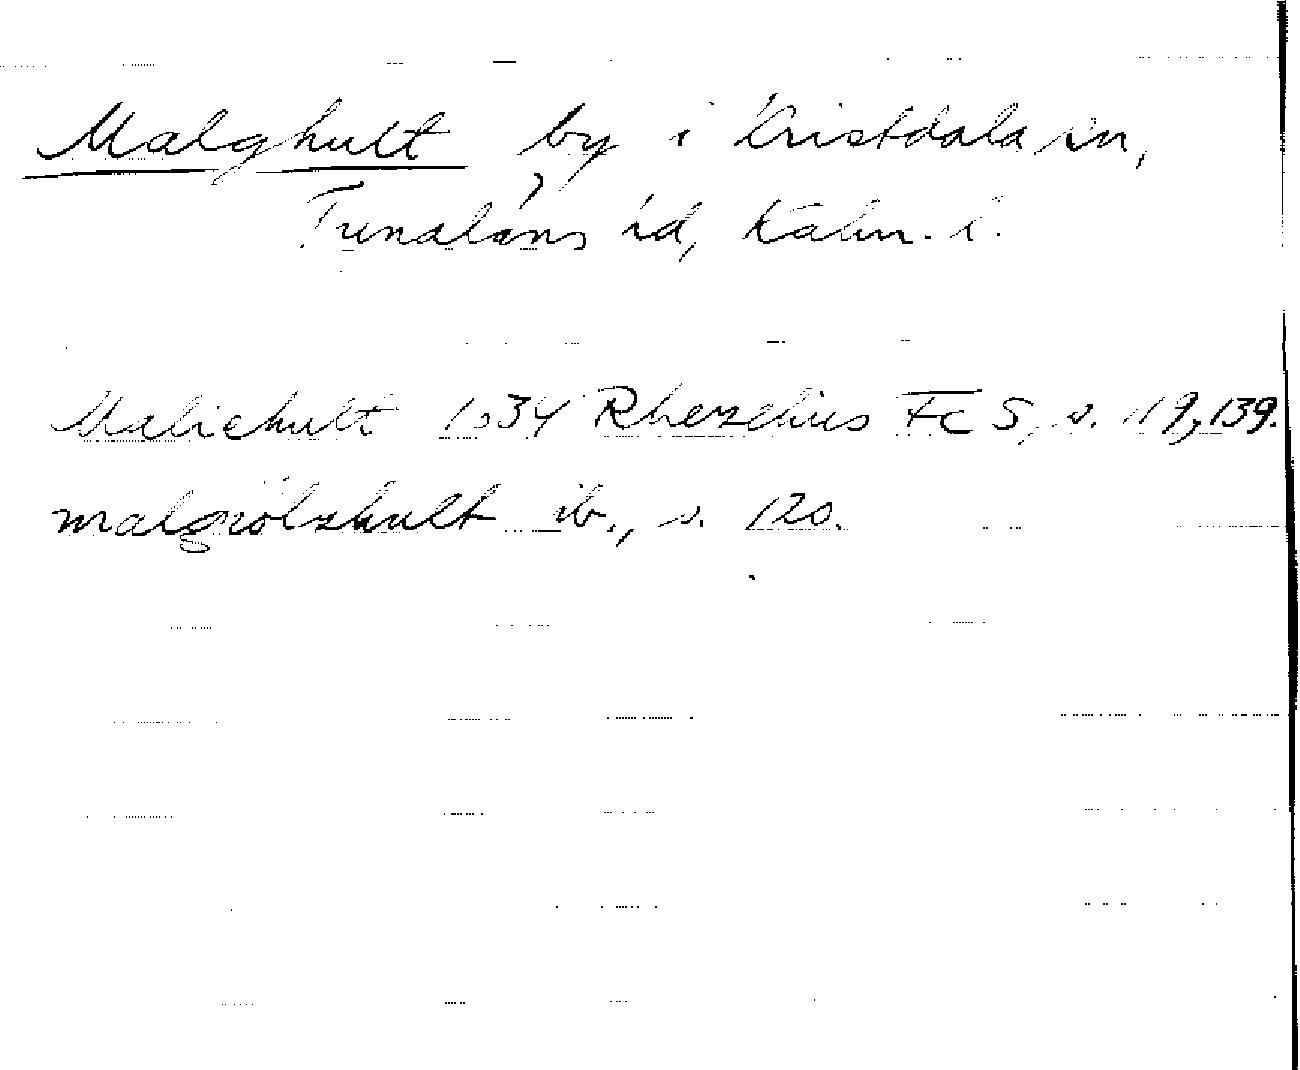 Malghult by i Kristdala sn,
Tunaläns hd, Kalm. l.
Malichult 1634 Rhezelius Fc 5, s. 119, 139.
malgiölshult ib., s. 120.